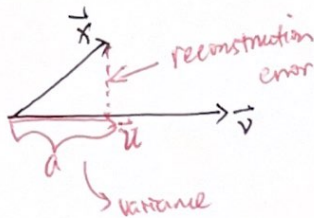 x⃗
reconstruction
error
u⃗
v⃗
a
variance